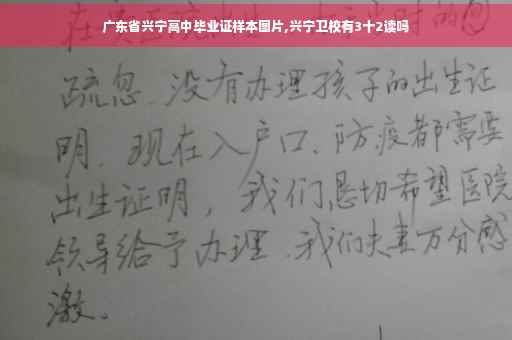 广东省兴宁高中毕业证样本图片,兴宁卫校有3十2读吗
疏忽.没有办理孩子的出生证
明.现在入户口、防疫都需要
出生证明，我们恳切希望医院
领导给予办理.我们夫妻万分感
激。